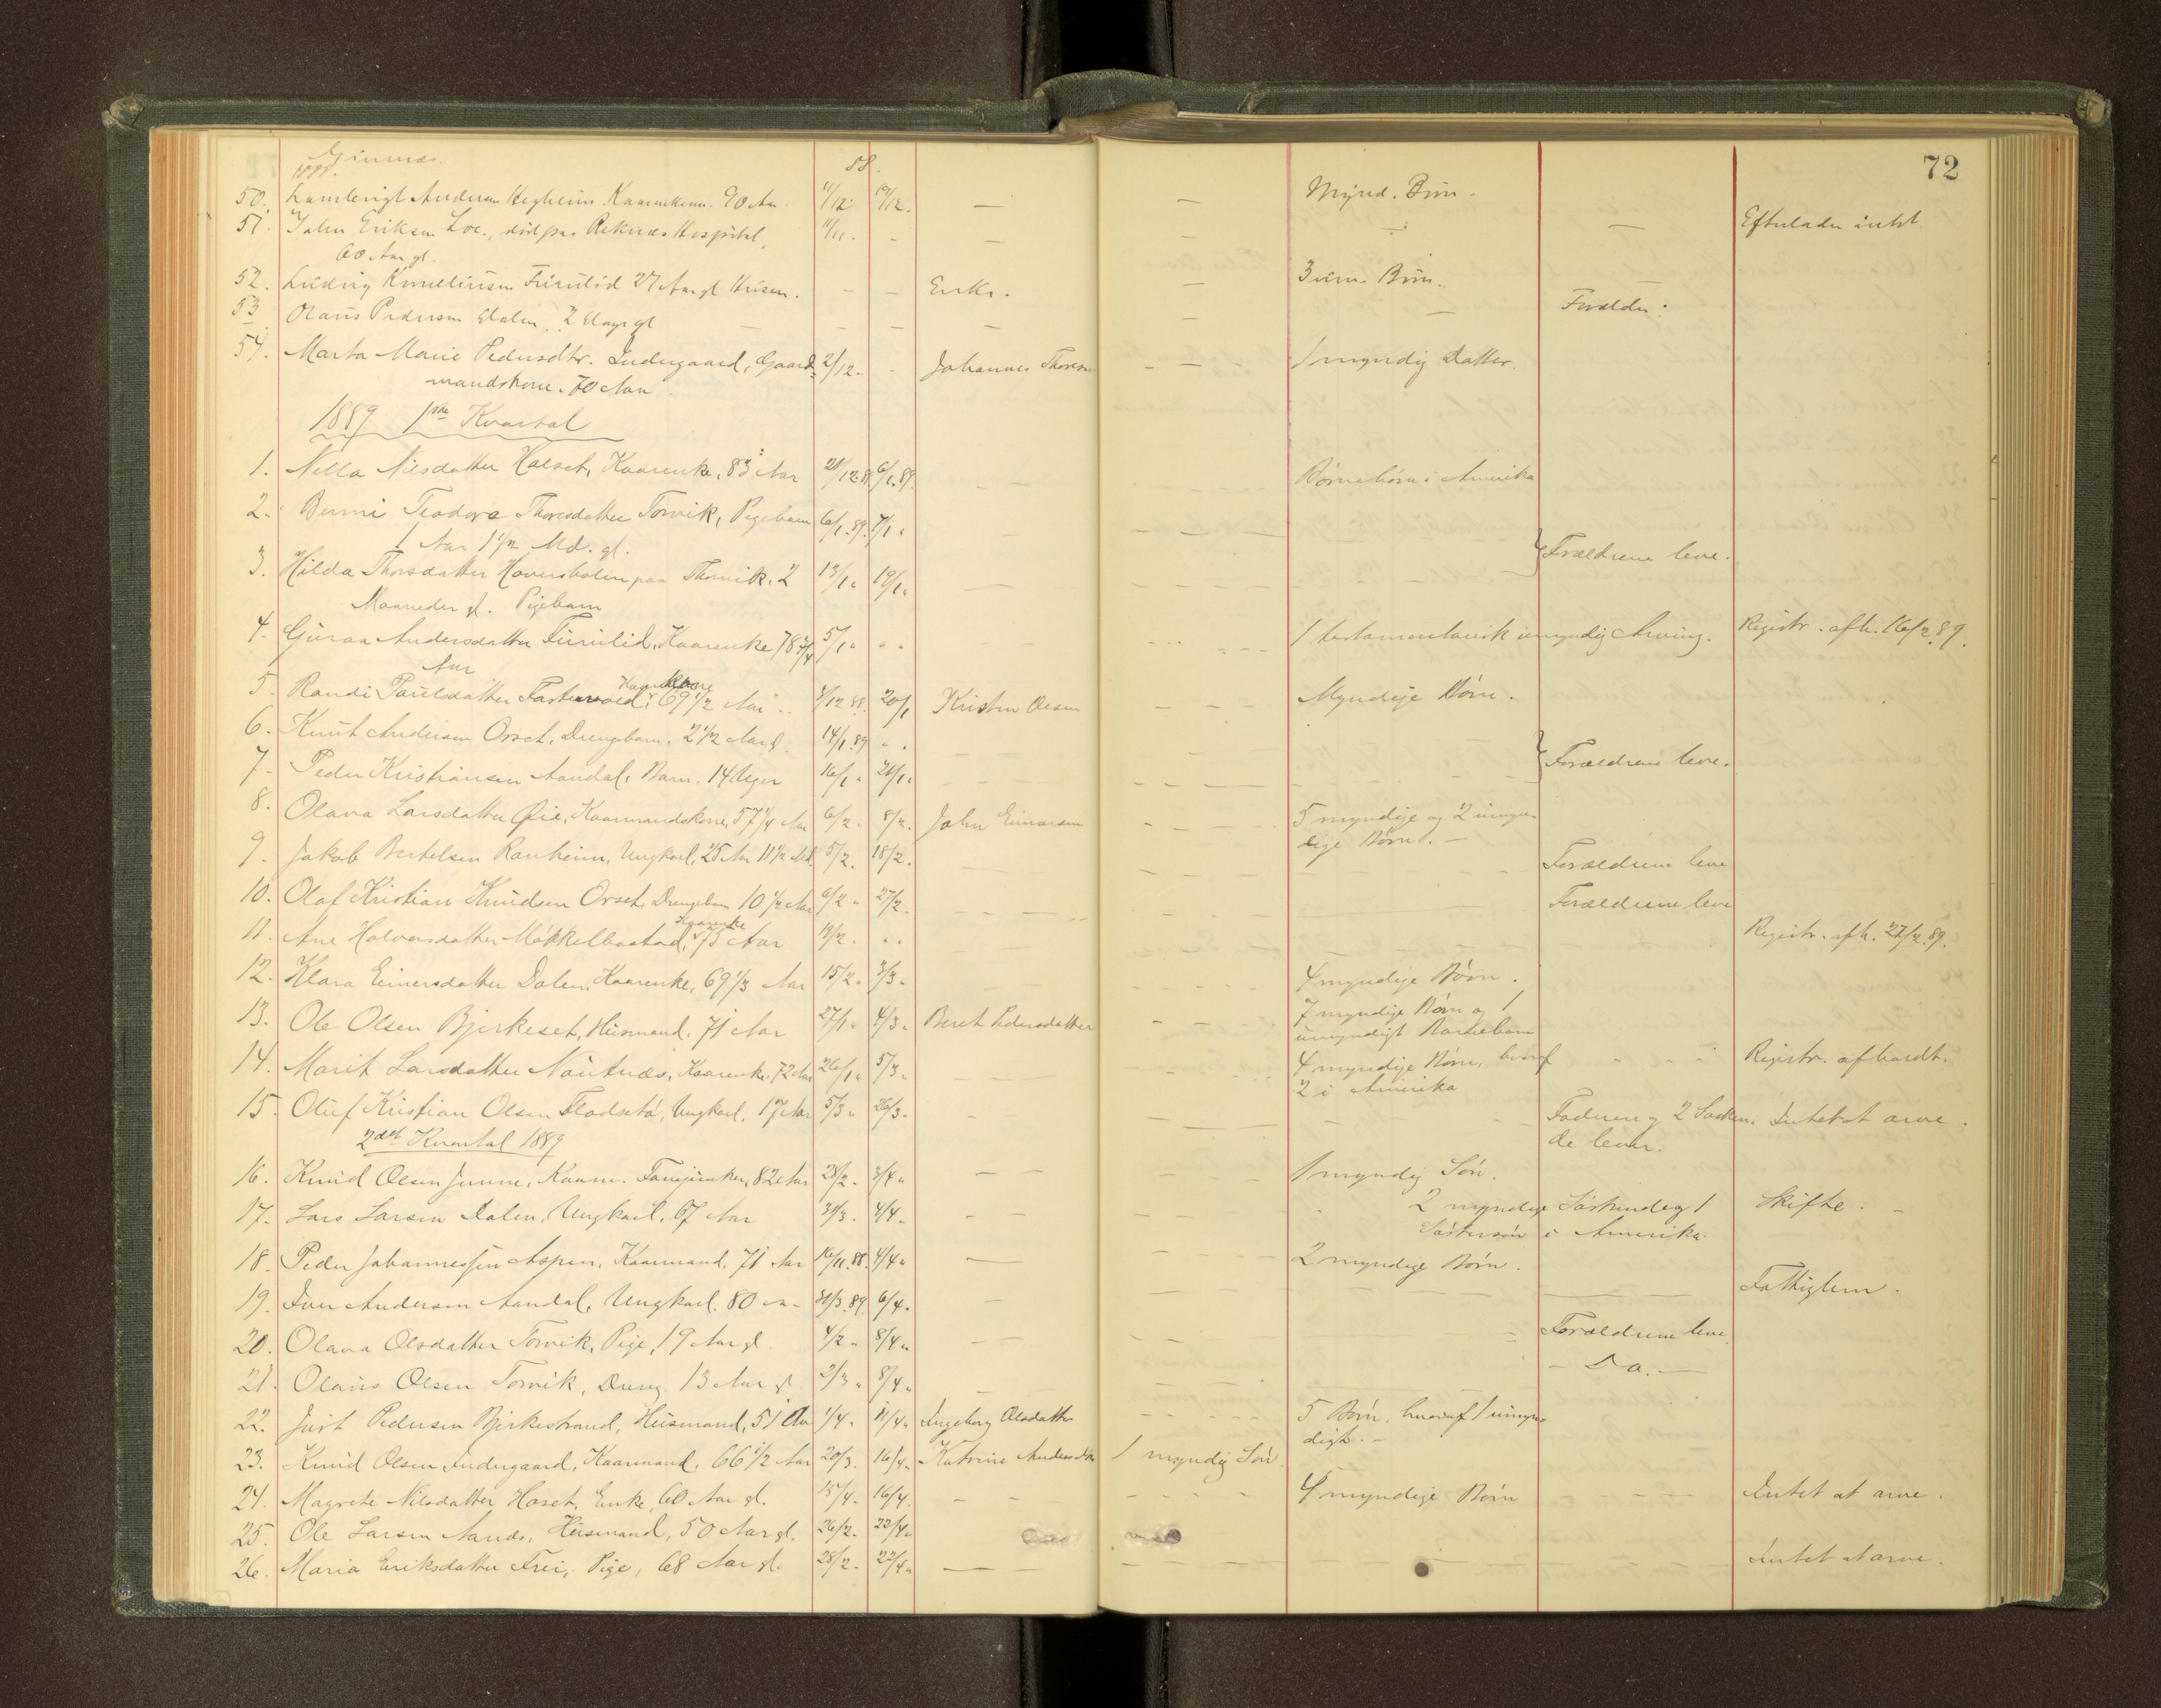 72
1888. 88.
50. Anderssen Hegheim Kaarenkem. 90 Aar. 4/12. 19/12. — — Mynd. Børn.
51. John Eriksen Loe, død paa Reknæs Hospital, 11/11. - — — — — Efterlader intet
60 Aar gl.
52. Ludvig Kornelinsen Furulid 27 Aar gl. Husm. — — Enke. — 3 um. Børn.
53 Olaus Pedersen Dalen. 2 Dage gl — — — — — — Forældre.
54. Marta Marie Pedersdtr. Indergaard, Gaard- 2/12. - Johannes Thoresen — — 1 myndig Datter.
mandskone. 70 Aar
1889 1ste Kvartal
1. Nilla Nilsdatter Halset, Kaarenke, 83 Aar 21/12.88 6/1.89. — — Børnebørn i Amerika
2. Teodora Thoresdatter Torvik, Pigebarn 6/1.89. 7/1 "
1 Aar 1 1/2 Md. gl. } Forældrene leve.
3. Hilda Thorsdatter Haversholm paa Thorvik. 2 13/1 " 19/1 "
Maaneder gl. Pigebarn
4. Guroa Andersdatter Furulid, Kaarenke 78 3/4 5/1 " " " 1 testamentarisk umyndig Arving. Registr. afh. 16/2 89.
Aar
Kaarkone
5. Randi Paulsdatter Fastervold, 69 1/2 Aar 4/12 88. 20/1 Kristen Olsen — — Myndige Børn.
6. Knut Andersen Orset, Drengebarn. 2 1/2 Aar gl. 14/1.89 " "
} Forældrene leve.
7. Peder Kristiansen Aandal, Barn. 14 Uger 16/1 " 21/1 "
8. Olava Larsdatter Øie, Kaarmandskone, 57 1/4 Aar 6/2 " 8/2. John Einarsen - — — 5 myndige og 2 umyn-
dige Børn. —
9. Jakob Bertelsen Ranheim, Ungkarl, 25 Aar 11 1/2 Md. 5/2. 18/2. Forældrene leve
10. Olaf Kristian Knudsen Orset, Drengebarn 10 1/2 Aar 6/2 " 27/2. Forældrene leve
Kaarenke
11. Ane Halvorsdatter Mökkelbostad, 75 Aar 19/2. " " Registr. afh. 27/2.89.
12. Klara Einersdatter Dalen, Kaarenke, 69 1/3 Aar 15/2 " 3/3 " 4 myndige Børn.
13. Ole Olsen Bjerkeset, Husmand. 71 Aar 27/1 " 4/3 " Beret Pedersdatter - — 7 myndige Børn og 1
umyndigt Barnebarn
14. Marit Larsdatter Nautnæs, Kaarenke. 72 Aar 26/1 " 5/3 " 4 myndige Børn, hvoraf Registr. afholdt.
2 i Amerika
15. Oluf Kristian Olsen Fladseta, Ungkarl, 17 Aar 5/3 " 26/3 " Faderen og 2 Intet at arve.
de lever.
2det Kvartal 1889
16. Knud Olsen Kaarm. 82 Aar 28/2 " 3/4 " — — 1 myndig Søn.
17. Lars Larsen Dalen, Ungkarl, 67 Aar 31/3. 4/4 " 2 myndige Søskende og 1 Skifte. —
Søstersøn i Amerika.
18. Peder Johannessen Aspen, Kaarmand. 71 Aar 16/11.88. 4/4 " — 2 myndige Børn.
19. Iver Andersen Aandal, Ungkarl. 80 31/3.89 6/4 " — Fattiglem.
20. Olava Olsdatter Torvik, Pige, 19 Aar gl. 4/2 " 8/4 " — — Forældrene leve.
21. Olaus Olsen Torvik, Dreng. 13 Aar gl. 2/3 " 8/4 " — — Do. —
22. Just Pedersen Bjerkestrand, Husmand, 51 Aar 1/4 " 11/4 " Ingeborg Olsdatter 5 Børn, hvoraf 1 umyn-
digt. —
23. Knud Olsen Indergaard, Kaarmand. 66 1/2 Aar 20/3. 16/4 " Katrine Andersdtr 1 myndig Søn.
24. Magrete Nilsdatter Haset, Enke, 60 Aar gl. 15/4 " 16/4. — — 4 myndige Børn — — Intet at arve.
25. Ole Larsen Aands, Husmand, 50 Aar gl. 26/2 " 22/4 "
26. Maria Eriksdatter Frei, Pige, 68 Aar gl. 28/2 " 22/4 " — — Intet at arve.